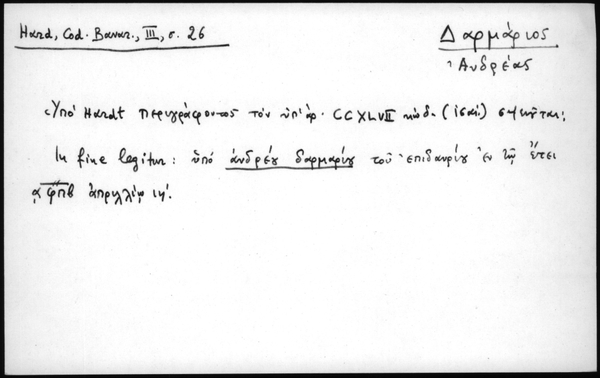 Hard, Cod. Bavar., III, σ. 26
Δαρμάριος
Ἀνδρέας
Ὑπὸ Hardt περιγράφοντος τὸν ὑπ' ἀρ. CCXLVII κώδ. (ἰσαι.) σημειοῦται:
In fine legitur: ὑπό ἀνδρέȣ δαρμαρίȣ τοῦ ἐπιδαυρίȣ ἐν τῷ ἔτει
͵αφπβ ἀπριλλίῳ ιη'.